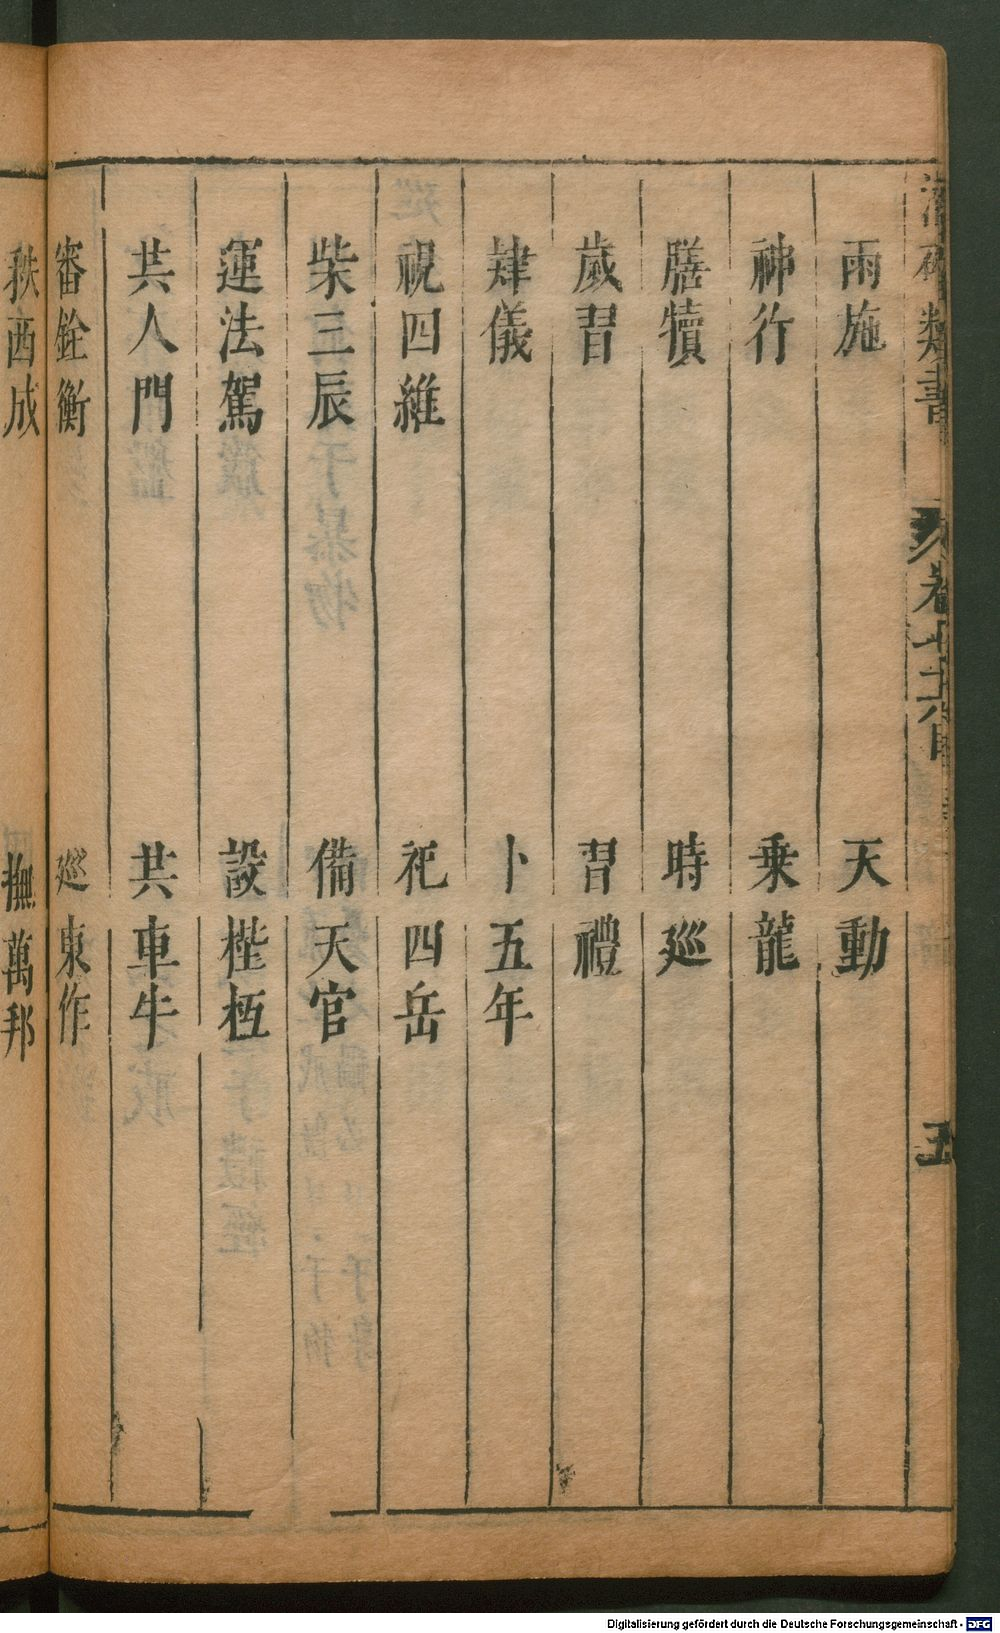 類書 卷七十六目 五
雨施 天動
神行 乗龍
膳犢 時廵
歲習 習禮
肄儀 卜五年
視四維 祀四岳
柴三辰 備天官
運法駕 設梐枑
共人門 共車牛
審銓衡 廵東作
秩西成 撫萬邦
Digitalisierung gefördert durch die Deutsche Forschungsgemeinschaft - DFG